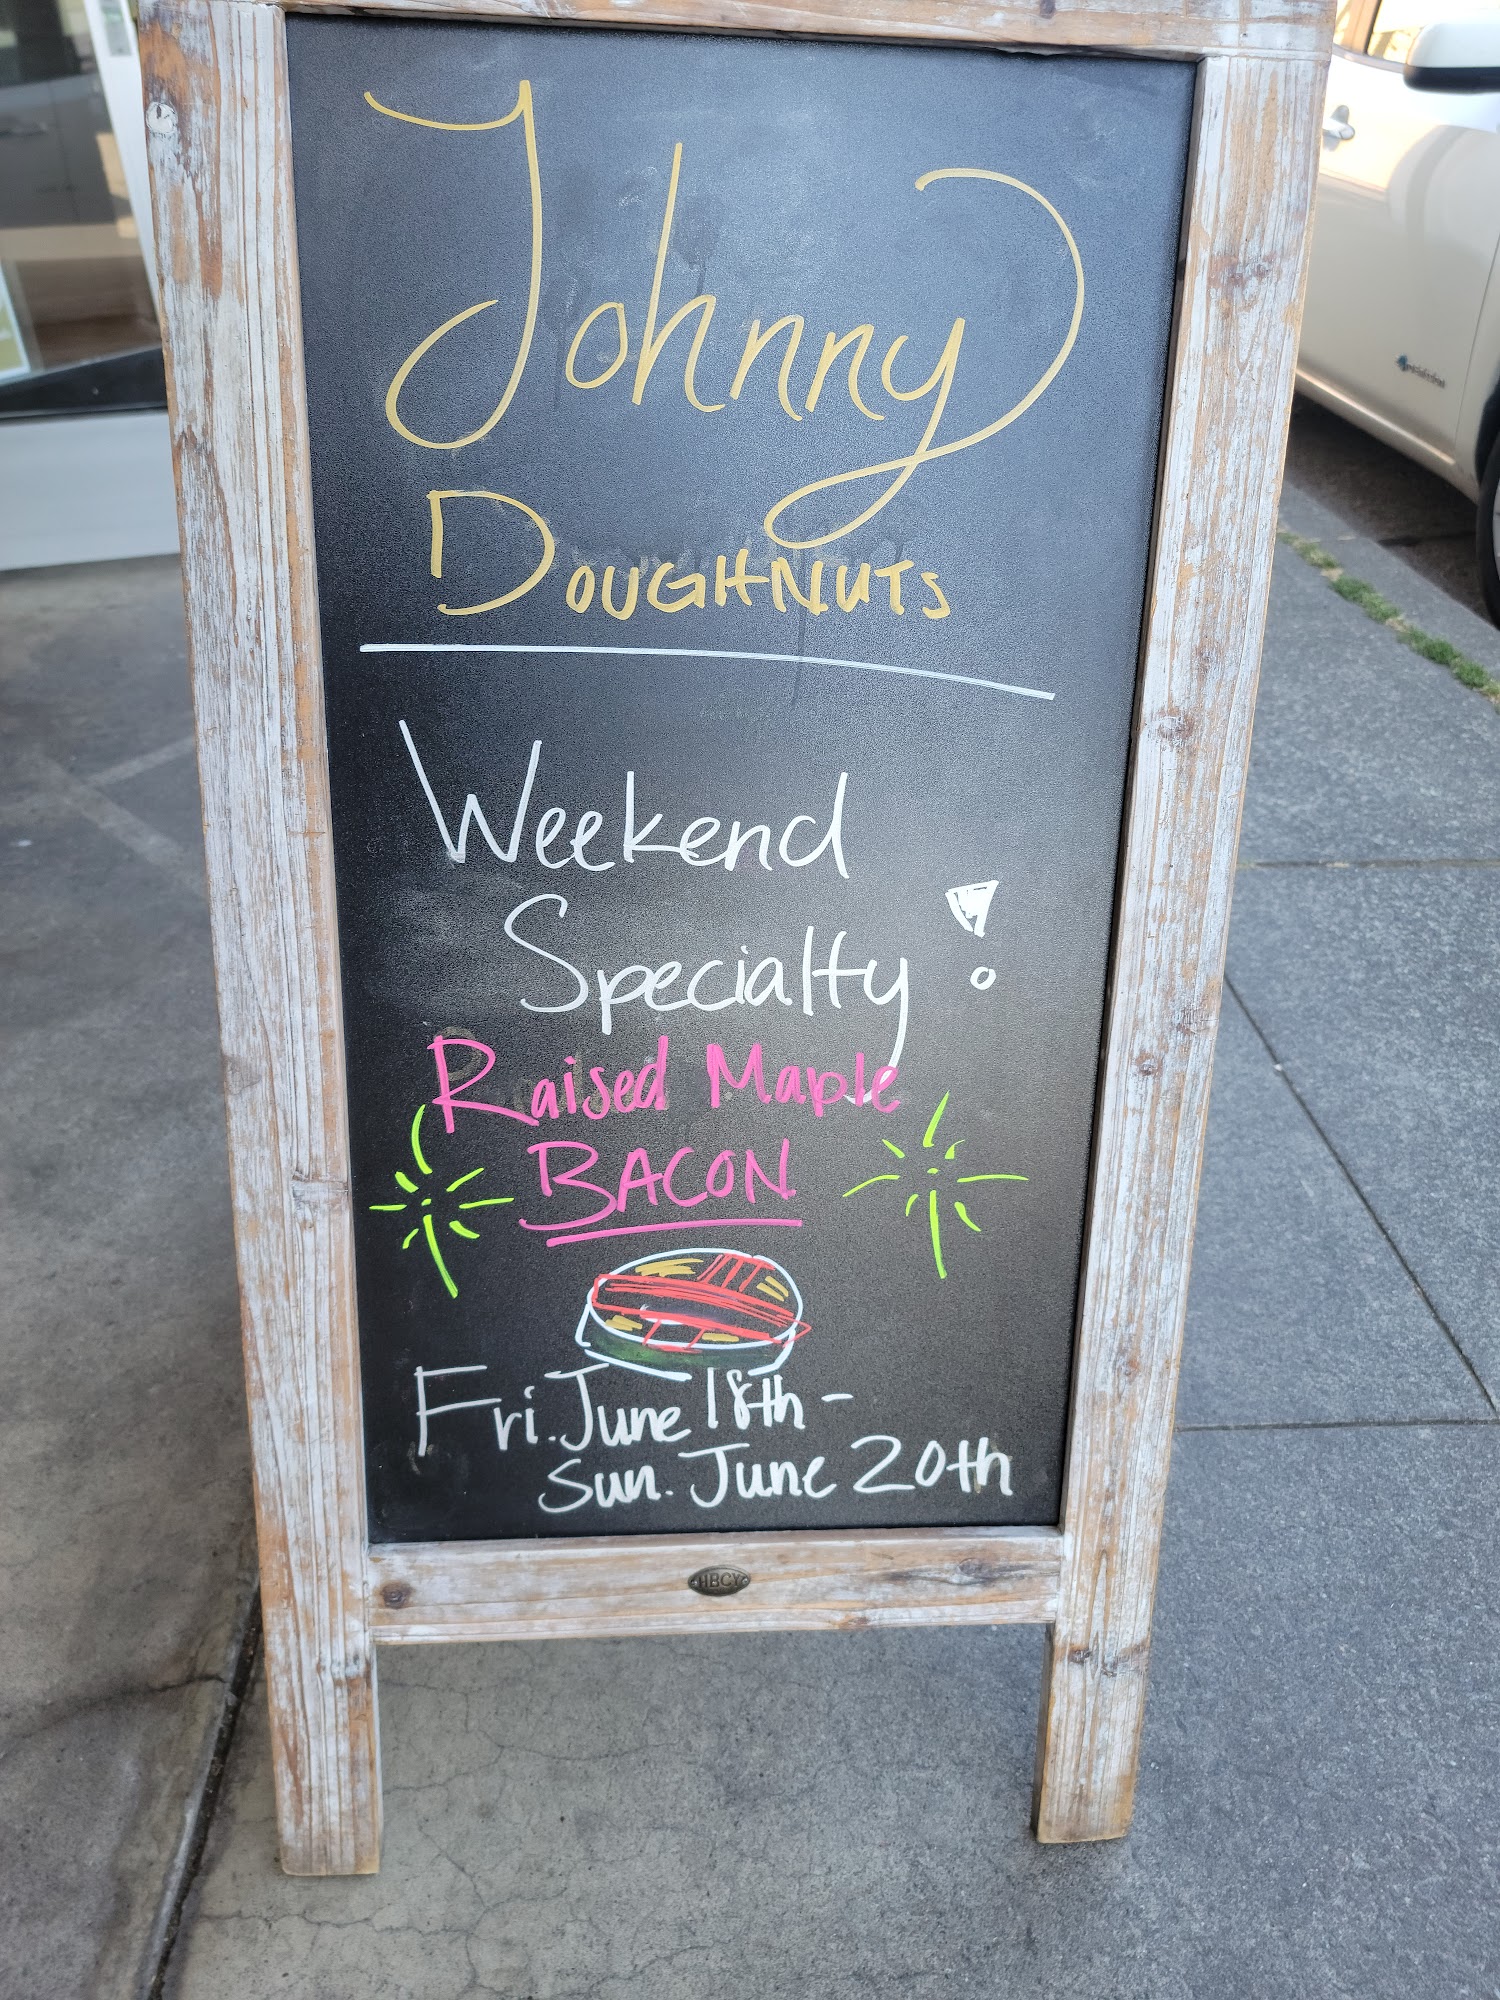 Johnny
DOUGHNUTS
Weekend
Specialty!
Raised Maple
BACON
Fri. June 18th -
Sun. June 20th
HBCY